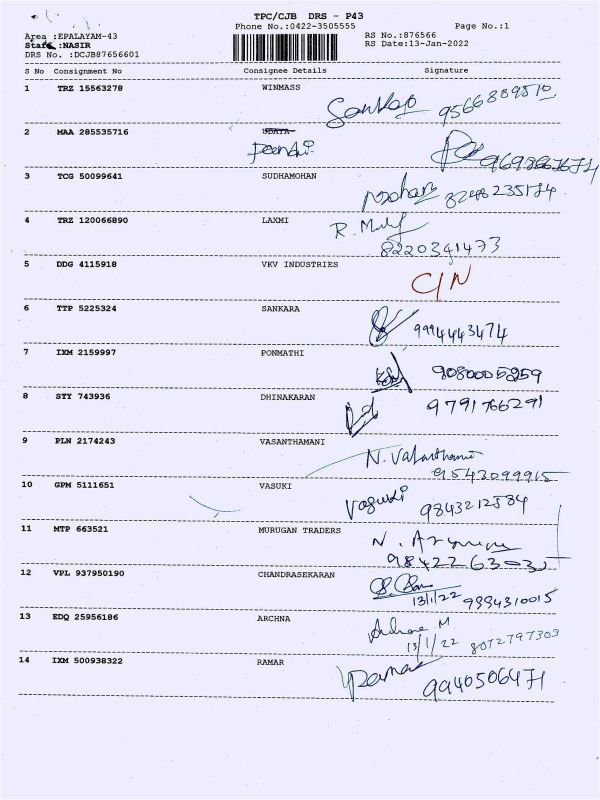 TPC/CJB DRS - P43
Phone No.:0422-3505555 Page No.:1
Area :EPALAYAM-43 RS No.:876566
Staff :NASIR RS Date:13-Jan-2022
DRS No. :DCJB87656601
S No Consignment No Consignee Details Signature
1 TRZ 15563278 WINMASS
Sankar 9566889810
2 MAA 285535716 UDAYA
Pandi
3 TCG 50099641 SUDHAMOHAN
mohan 8248235174
4 TRZ 120066890 LAXMI
8220341473
5 DDG 4115918 VKV INDUSTRIES
C/N
6 TTP 5225324 SANKARA
9994443474
7 IXM 2159997 PONMATHI
9080005259
8 STY 743936 DHINAKARAN
9791766291
9 PLN 2174243 VASANTHAMANI
N. Vasanthamani
9543099915
10 GPM 5111651 VASUKI
Vasuki 9843212584
11 MTP 663521 MURUGAN TRADERS
12 VPL 937950190 CHANDRASEKARAN
13/1/22 9994310015
13 EDQ 25956186 ARCHNA
Archana M
13/1/22 8072797303
14 IXM 500938322 RAMAR
Ramar 9940506471